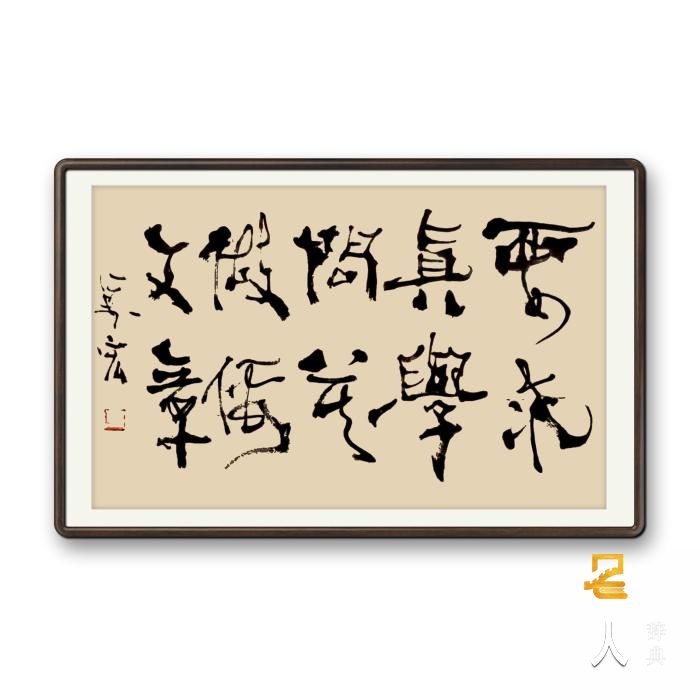 要求
真學
問莫
做假
文章
名
人
辞典